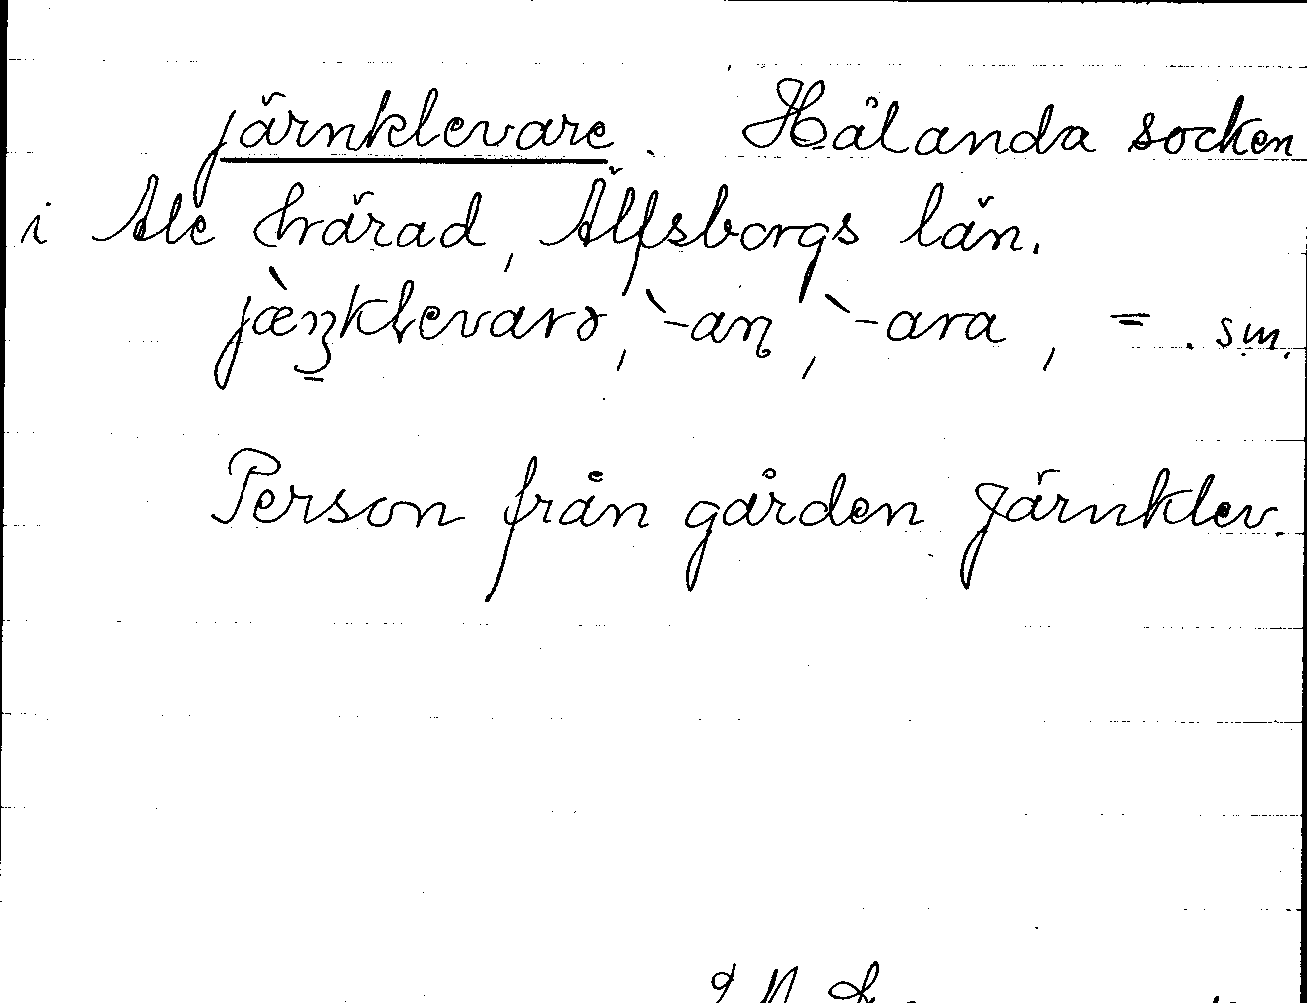 järnklevare. Hålanda socken
i Ale härad, Älfsborgs län.
jæ̀ꞥklevarə, `-aꞥ, `-ara, = . sm.
Person från gården Järnklev.